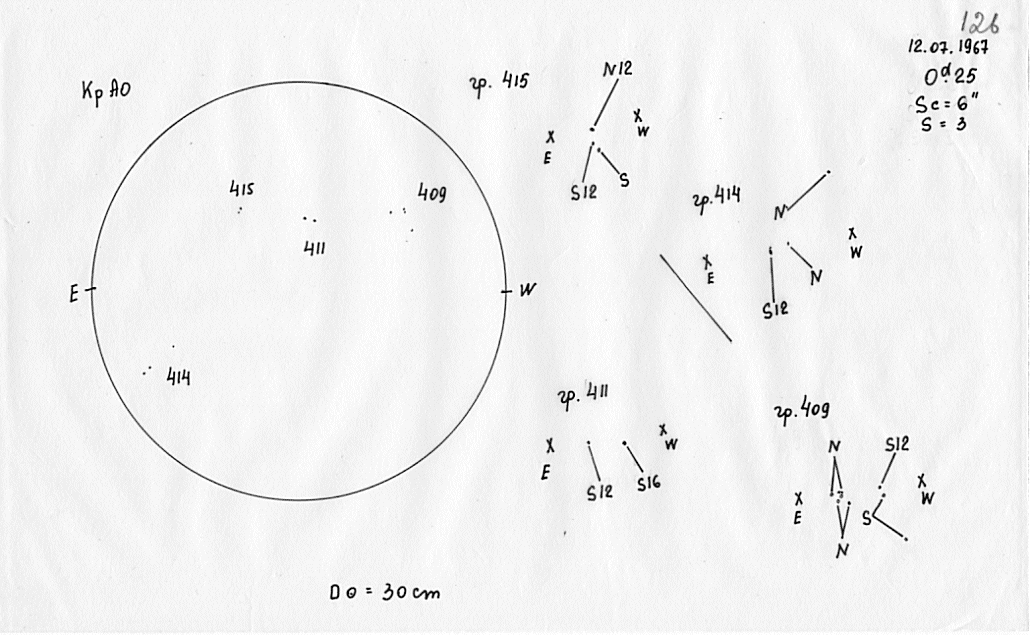 126
12.07.1967
0ᵈ.25
Sc = 6"
S = 3
Кр АО
415
409
411
E
W
414
D⊙ = 30 cm
гр. 415
N12
X
E
X
W
S12
S
гр. 414
N
X
E
X
W
N
S12
гр. 411
X
E
X
W
S12
S16
гр. 409
N
S12
X
E
X
W
?
S
N